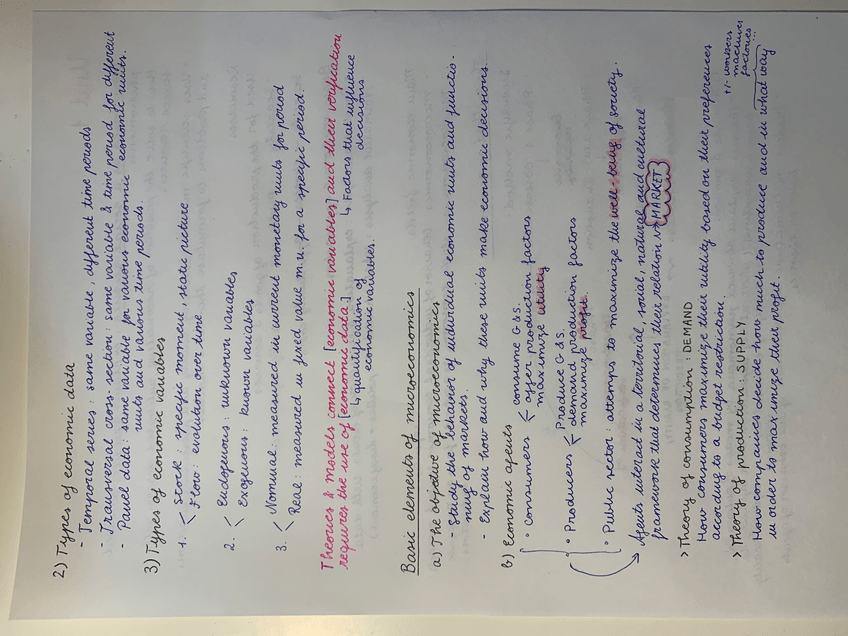 2) Types of economic data
- Temporal series: same variable, different time periods
- Transversal cross-section: same variable & time period for different
economic units.
- Panel data: same variable for various economic
units and various time periods.
3) Types of economic variables
1. < Stock: specific moment, static picture
Flow: evolution over time
2. < Endogenous: unknown variables
Exogenous: known variables
3. < Nominal: measured in current monetary units for period
Real: measured in fixed value m.u. for a specific period.
Theories & models connect [economic variables] and their verification
requires the use of [economic data.]
↳ Factors that influence
decisions
↳ quantification of
economic variables.
Basic elements of microeconomics
a) The objective of microeconomics
- Study the behavior of individual economic units and functio-
ning of markets.
- Explain how and why these units make economic decisions.
b) Economic agents
° Consumers < consume G & S.
offer production factors
maximize utility
° Producers < Produce G & S.
demand production factors
maximize profit.
° Public sector: attempts to maximize the well-being of society.
Agents interact in a territorial, social, natural and cultural
framework that determines their relation → MARKET
> Theory of consumption: DEMAND
How consumers maximize their utility based on their preferences
according to a budget restriction.
> Theory of production: SUPPLY
How companies decide how much to produce and in what way
in order to maximize their profit.
+/- workers
machines
factories...